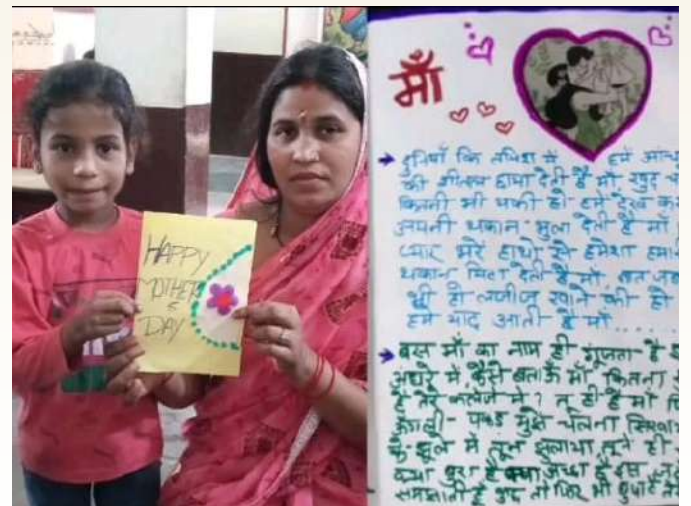 HAPPY
MOTHER'S
DAY
माँ
दुनियाँ कि तपिश में हमें आंच
की शीतल छाया देती है माँ खुद
कितनी भी थकी हो हमें देख कर
अपनी थकान भुला देती है माँ
प्यार भरे हाथों से हमेशा हमारी
थकान मिटा देती है माँ, बात जब
भी हो लजीज खाने की हो
हमें याद आती है माँ .....
बस माँ का नाम ही गूंजता है
अंधेरे में कैसे बताऊँ माँ कितना
है तेरे कलेजे में ? तू ही है माँ
ऊंगली - पकड़ मुझे चलना सिखाया
के झूले में तूने झुलाया तूने ही
क्या बुरा है क्या अच्छा है इस
समझाती है